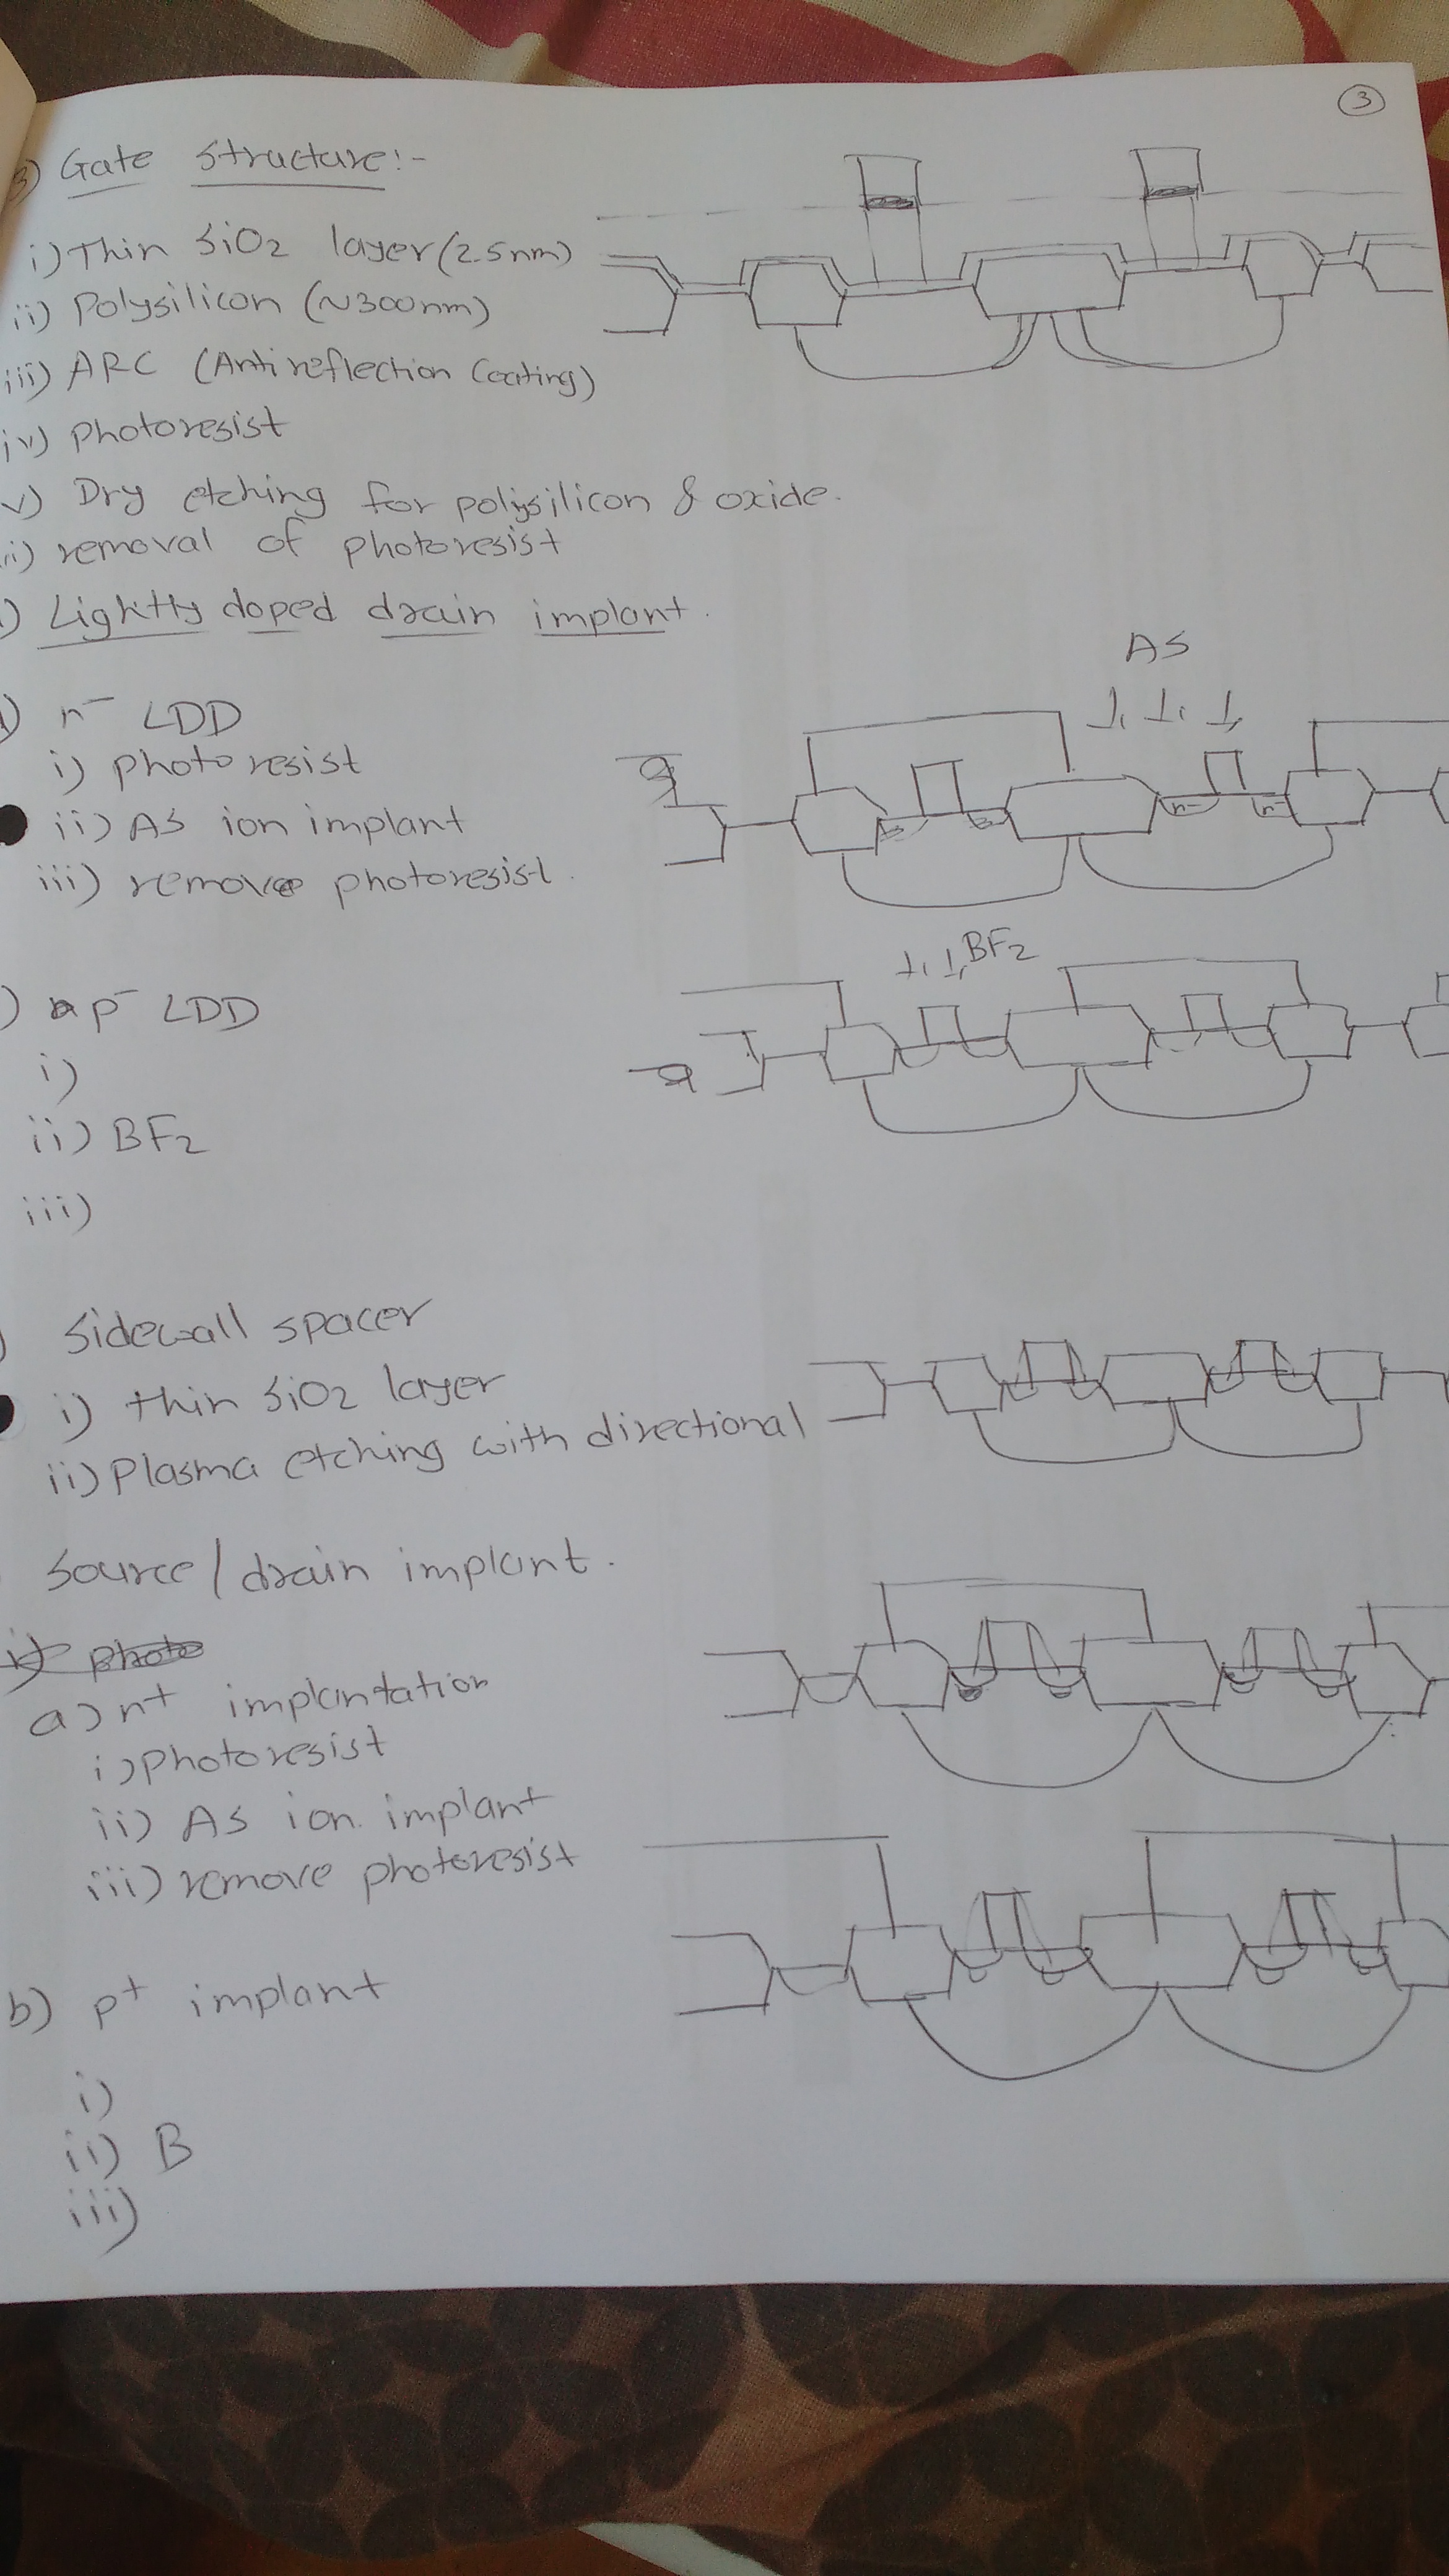 3
3) Gate Structure:-
i) Thin SiO2 layer (2.5nm)
ii) Polysilicon (~300nm)
iii) ARC (Anti reflection Coating)
iv) Photoresist
v) Dry etching for polysilicon & oxide.
vi) removal of photoresist
) Lightly doped drain implant.
AS
) n⁻ LDD
i) photoresist
ii) AS ion implant
n- n-
iii) remove photoresist.
BF2
) p⁻ LDD
i)
ii) BF2
iii)
) Sidewall spacer
i) thin SiO2 layer
ii) Plasma etching with directional
Source/drain implant.
i) photo
a) n+ implantation
i) Photoresist
ii) AS ion implant
iii) remove photoresist
b) p+ implant
i)
ii) B
iii)